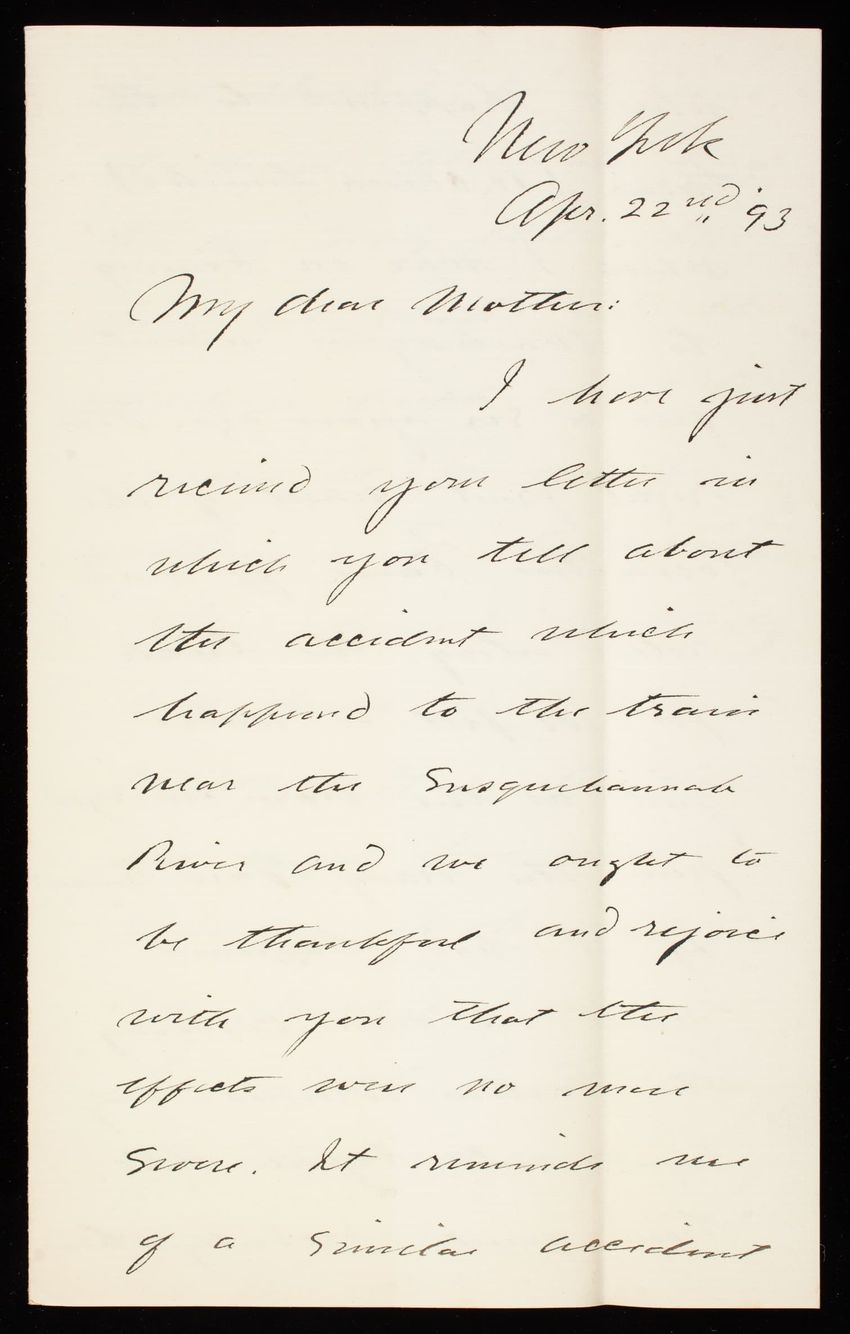 New York
Apr. 22nd '93
My dear Mother:
I have just
received your letter in
which you tell about
the accident which
happened to the train
near the Susquehannah
River and we ought to
be thankful and rejoice
with you that the
effects were no more
severe. It reminds me
of a similar accident